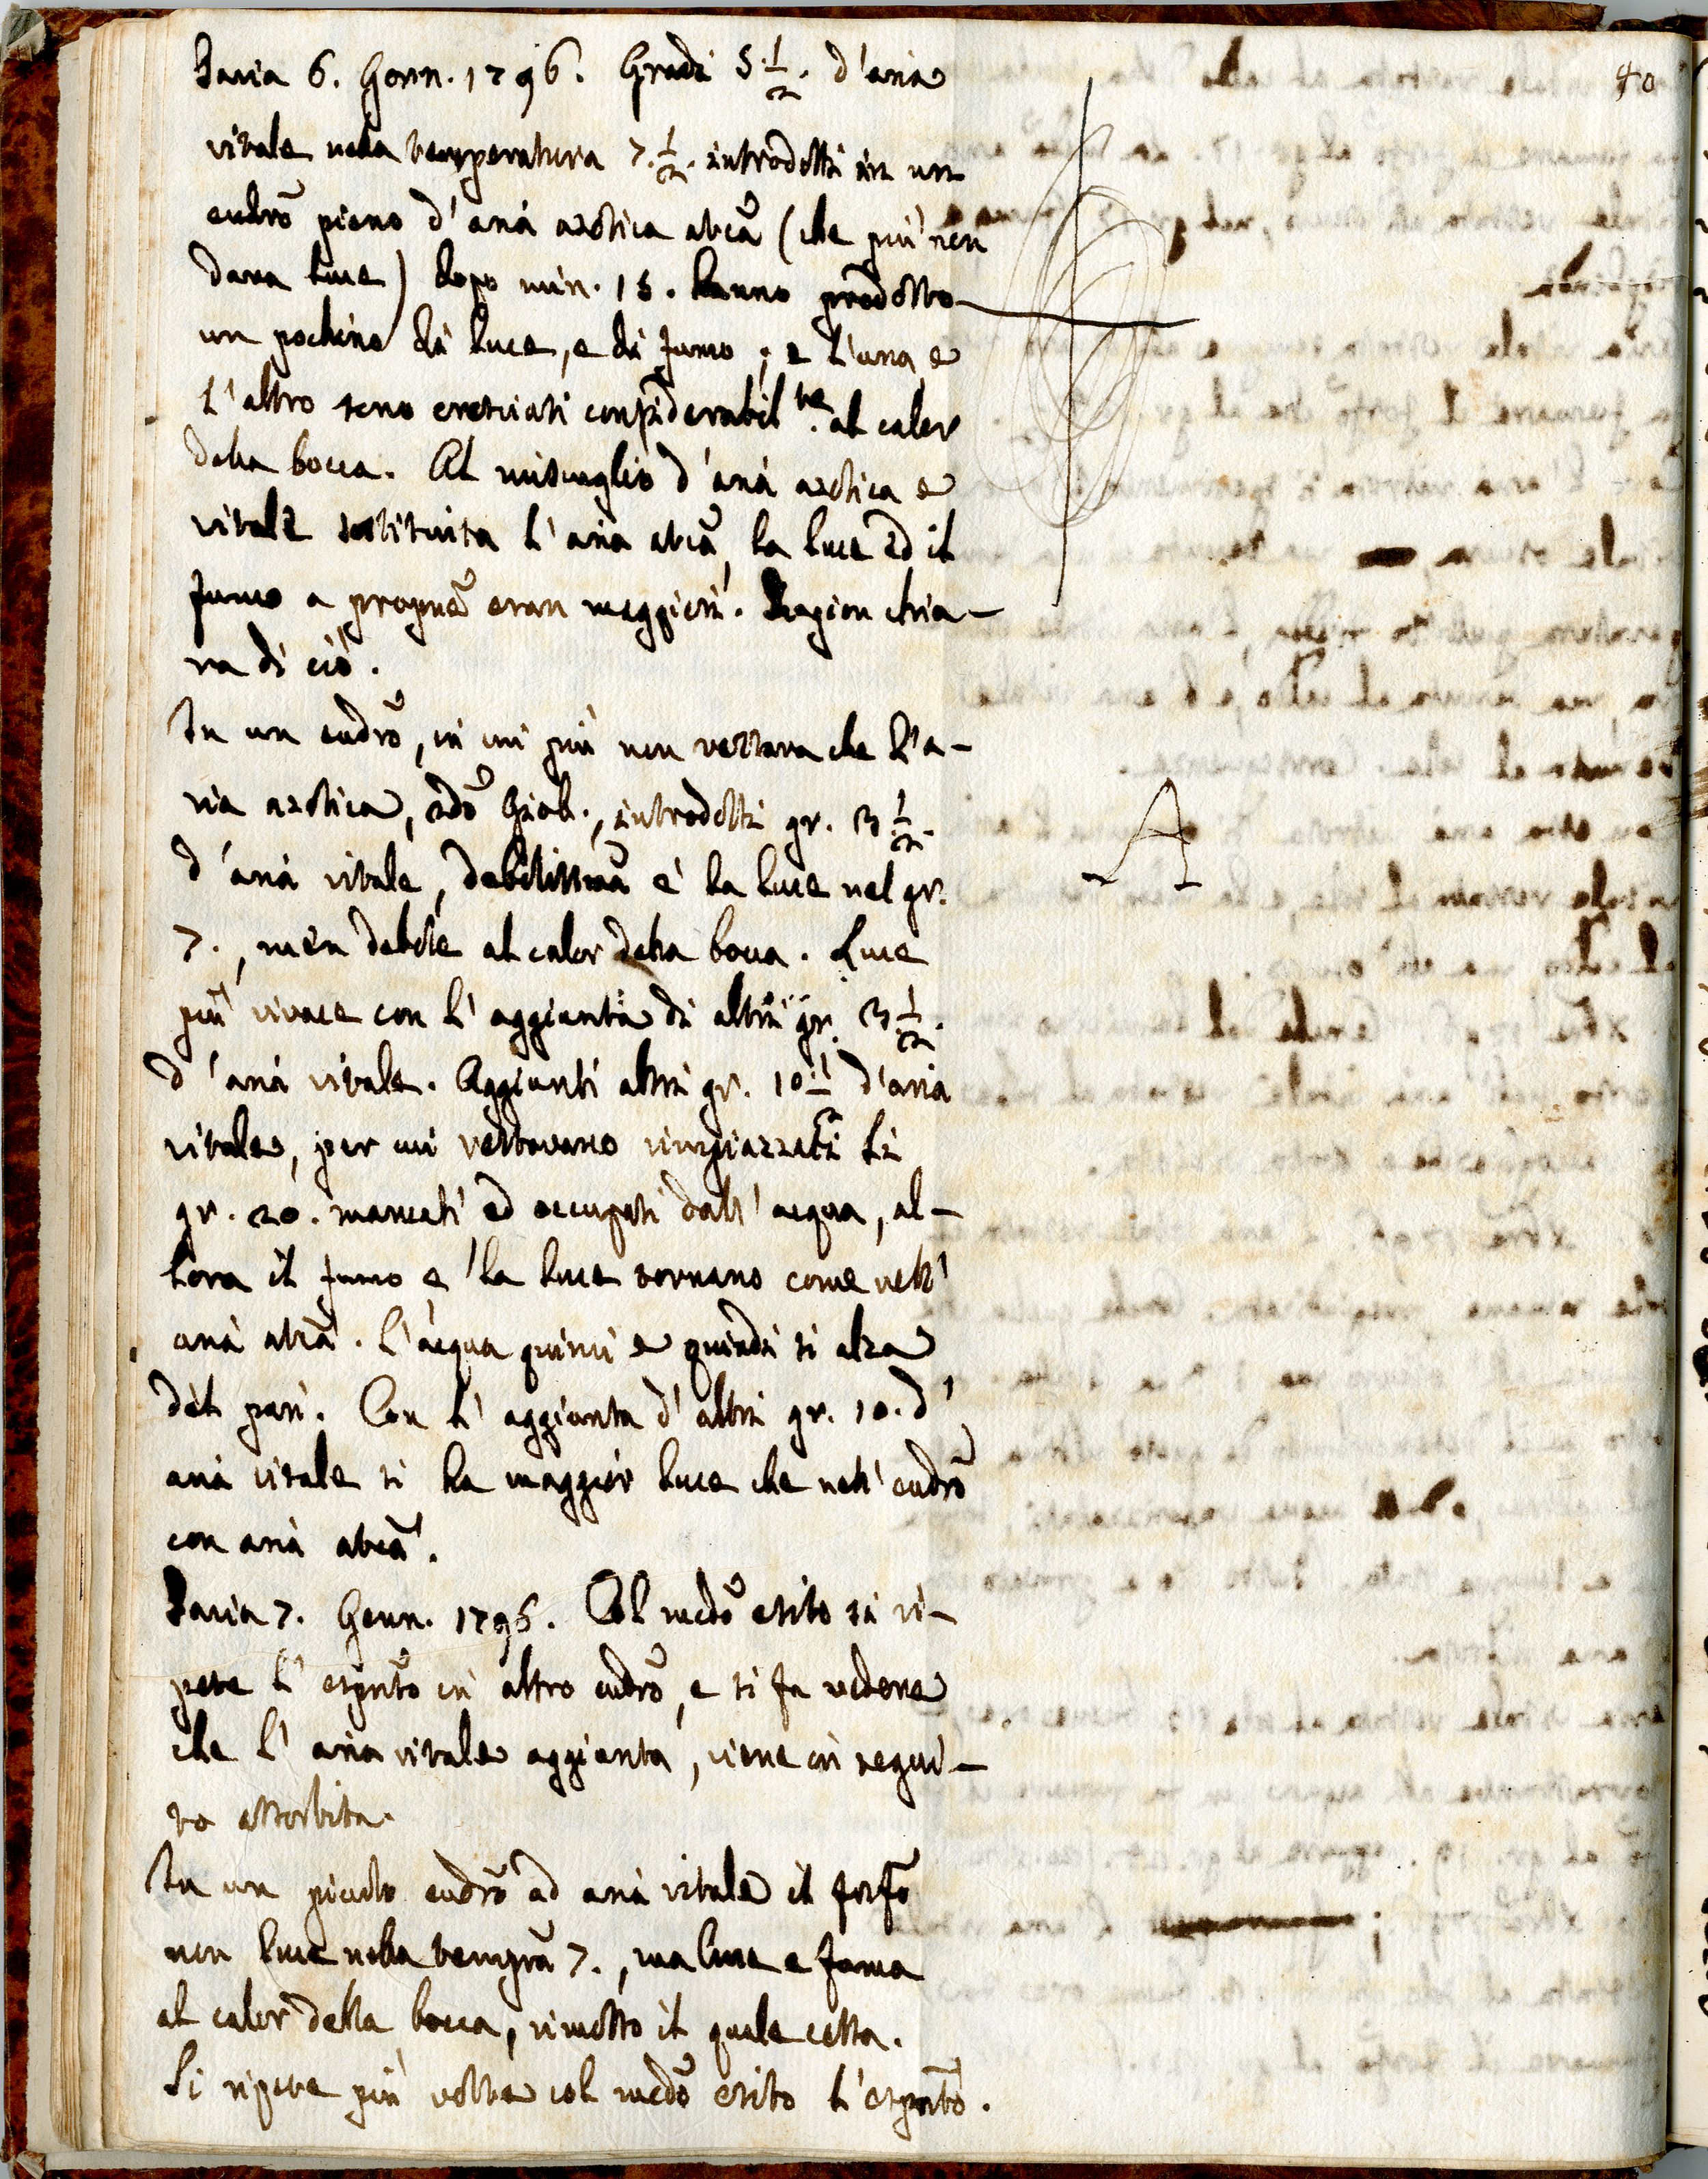 40
Pavia 6. Genn. 1796. Gradi 5 1/2. d'aria
vitale nella temperatura 7. 1/2. introdotti in un
eudrō pieno d'aria azotica atcā (che più non
dava luce) dopo min. 15. hanno prodotto
un pochino di luce, e di fumo; e l'una e
l'altro sono cresciuti considerabilte. al calor
della bocca. Al miscuglio d'aria azotica e
vitale sostituita l'aria atcā, la luce ed il
fumo a propnē eran maggiori. Ragion chia-
ra di ciò.
In un eudrō, in cui più non restava che l'a-
ria azotica, edō Giob., introdotti gr. 3 1/2.
d'aria vitale, debilissmā è la luce nel gr.
7., men debole al calor della bocca. Luce
più vivace con l'aggiunta di altri gr. 3 1/2.
d'aria vitale. Aggiunti altri gr. 10 1/2 d'aria
vitale, per cui restavano rimpiazzati li
gr. 20. mancati ed occupati dall'acqua, al-
lora il fumo e la luce tornano come nell'
aria atcā. L'acqua quinci e quindi si alza
del pari. Con l'aggiunta d'altri gr. 10. d'
aria vitale si ha maggior luce che nell'eudrō
con aria atcā.
Pavia 7. Genn. 1796. Col medō esito si ri-
pete l'espntō in altro eudrō, e si fa vedere
che l'aria vitale aggiunta, viene in segui-
to assorbita.
In un piccolo eudrō ad aria vitale il fosfō
non luce nella temprā 7., ma luce e fuma
al calor della bocca, rimosso il quale cessa.
Si ripete più volte col medō esito l'espntō.
A